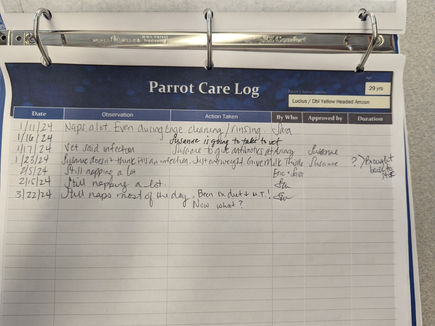 Parrot Care Log
29 yrs
Lucius / Dbl Yellow Headed Amazon
Date Observation Action Taken By Who Approved by Duration
1/11/24 Naps a lot. Even during cage cleaning / rinsing Sara
1/16/24 Susanne is going to take to vet
1/17/24 Vet said infection Susanne to give antibiotics at Susanne
1/23/24 Susanne doesn't think it's an infection. Just overweight. Give Milk Thistle Susanne ? > brought back to
2/5/24 Still napping a lot Eric + Sara
2/15/24 Still napping a lot
3/22/24 Still naps most of the day. Been on diet + M.T.!
Now what?